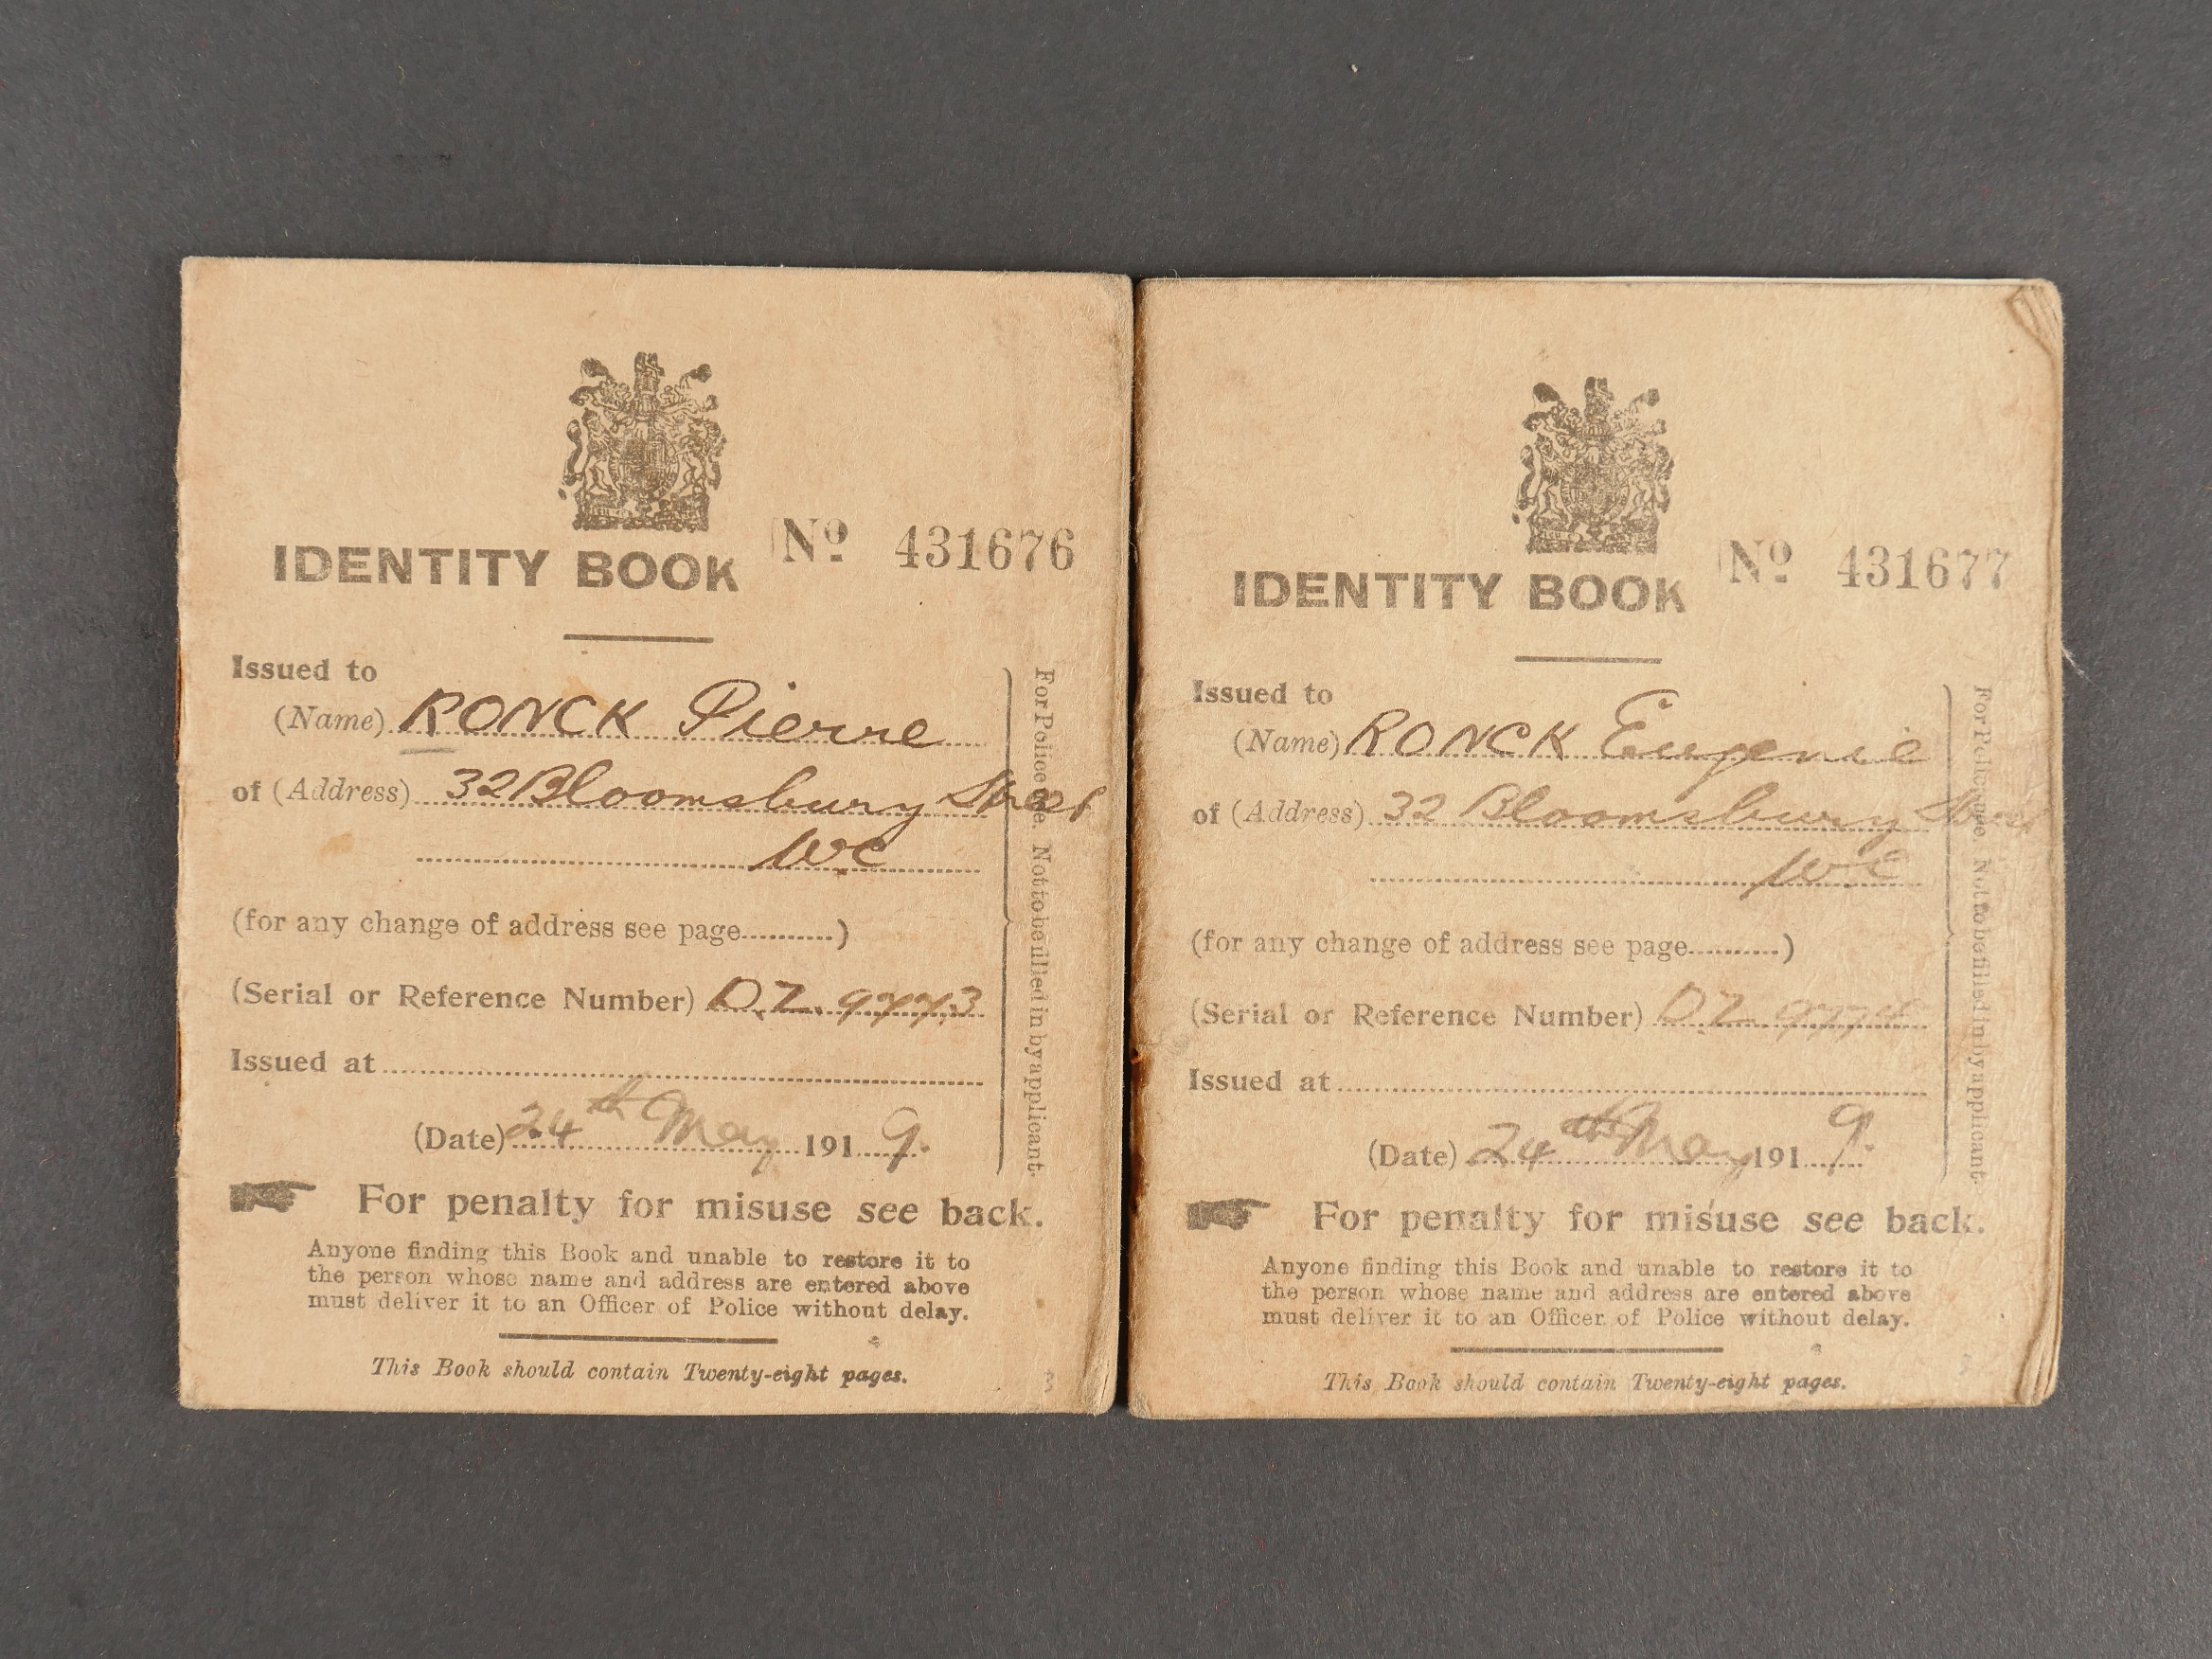 IDENTITY BOOK
Nº 431676
Issued to
(Name) RONCK Pierre
of (Address) 32 Bloomsbury Street
WC
(for any change of address see page..........)
(Serial or Reference Number) D.Z. 9773
Issued at
(Date) 24th May 1919.
For Police use. Not to be filled in by applicant.
For penalty for misuse see back.
Anyone finding this Book and unable to restore it to
the person whose name and address are entered above
must deliver it to an Officer of Police without delay.
This Book should contain Twenty-eight pages.
3
IDENTITY BOOK
Nº 431677
Issued to
(Name) RONCK Eugenie
of (Address) 32 Bloomsbury Street
WC
(for any change of address see page..........)
(Serial or Reference Number) DZ 9774
Issued at
(Date) 24th May 1919.
For Police use. Not to be filled in by applicant.
For penalty for misuse see back.
Anyone finding this Book and unable to restore it to
the person whose name and address are entered above
must deliver it to an Officer of Police without delay.
This Book should contain Twenty-eight pages.